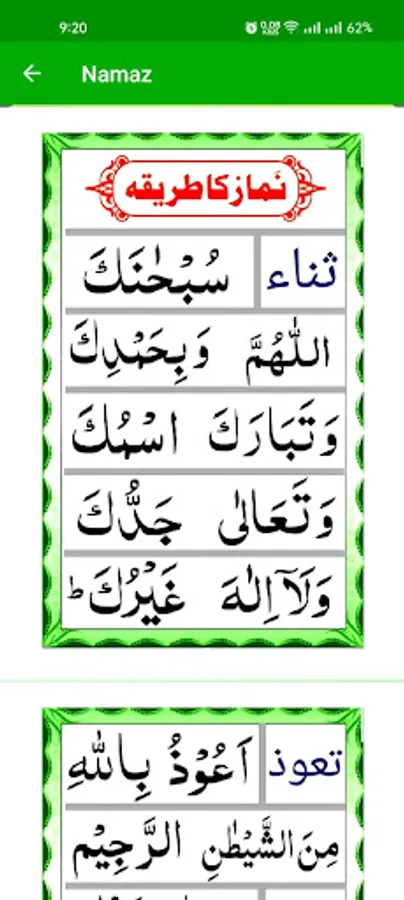 9:20 0.08 KB/S 62%
Namaz
نماز کا طریقه
ثناء سُبْحٰنَكَ
اللّٰهُمَّ وَبِحَمْدِكَ
وَتَبَارَكَ اسْمُكَ
وَتَعَالٰی جَدُّكَ
وَلَآ اِلٰهَ غَيْرُكَ ط
تعوذ اَعُوْذُ بِاللّٰهِ
مِنَ الشَّيْطٰنِ الرَّجِيْمِ